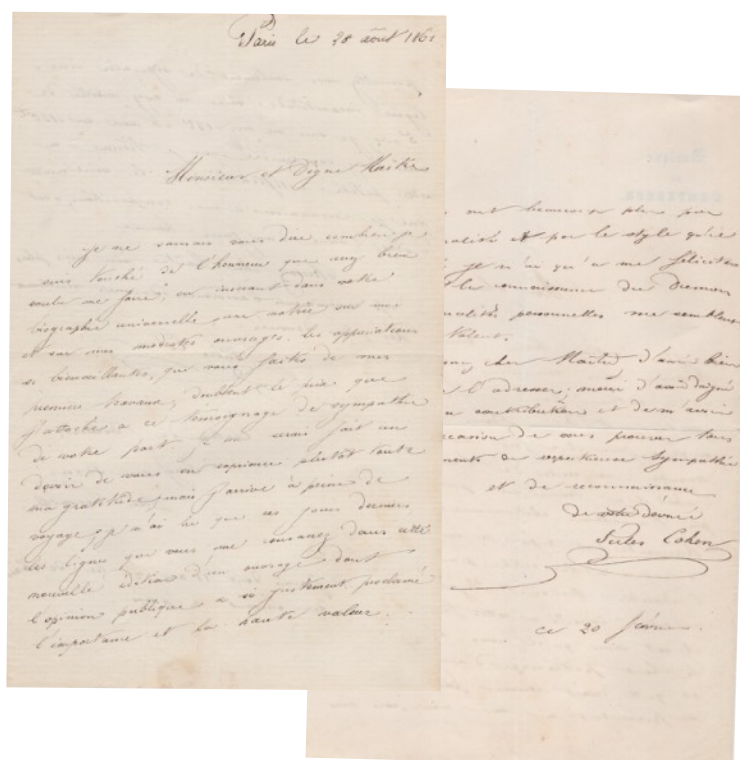 Paris le 28 août 186
Monsieur et Digne Maître
Je ne saurais vous dire combien je
suis touché de l'honneur que avez bien
voulu me faire, en insérant dans votre
biographie universelle une notice sur moi
et sur mes modestes ouvrages. Les appréciations
si bienveillantes, que vous faites de mes
premiers travaux, doublent le prix que
j'attache à ce témoignage de sympathie
de votre part. Je me serais fait un
devoir de vous en exprimer plutôt toute
ma gratitude, mais j'arrive à peine de
voyage, je n'ai lu que ces jours derniers
les lignes que vous me consacrez dans cette
nouvelle édition d'un ouvrage dont
l'opinion publique a si justement proclamé
l'importance et la haute valeur.
met beaucoup plus par
et par le style qu'il
je n'ai qu'à me féliciter
la connaissance du
personnelles me semblent
talent.
cher Maître, d'avoir bien
l'adresser, merci d'avoir daigné
contribution et de m'avoir
occasion de vous prouver tous
de respectueuse sympathie
et de reconnaissance
de votre dévoué
Jules Cohen
ce 20 février.